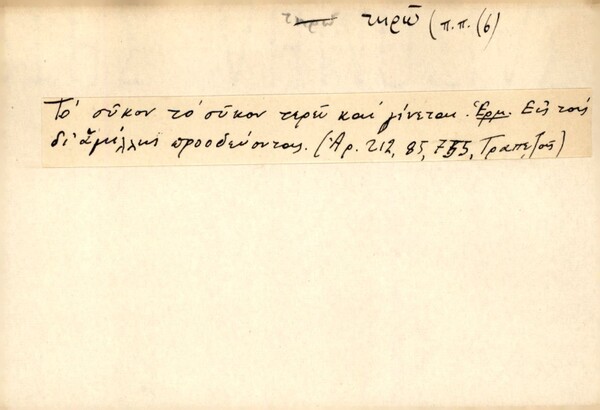 τηρῶ (π.π. (6)
Τὸ σῦκον τὸ σῦκον τερεῖ καὶ γίνεται. Ἑρμ. Εἰς τοὺς
δι' ἁμίλλης προοδεύοντας. (Ἀρ. 212, 85, 755, Τραπεζοῦς)